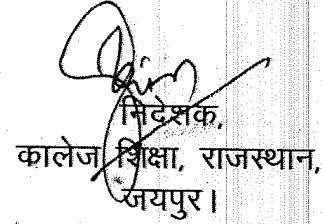 निदेशक,
कालेज शिक्षा, राजस्थान,
जयपुर।